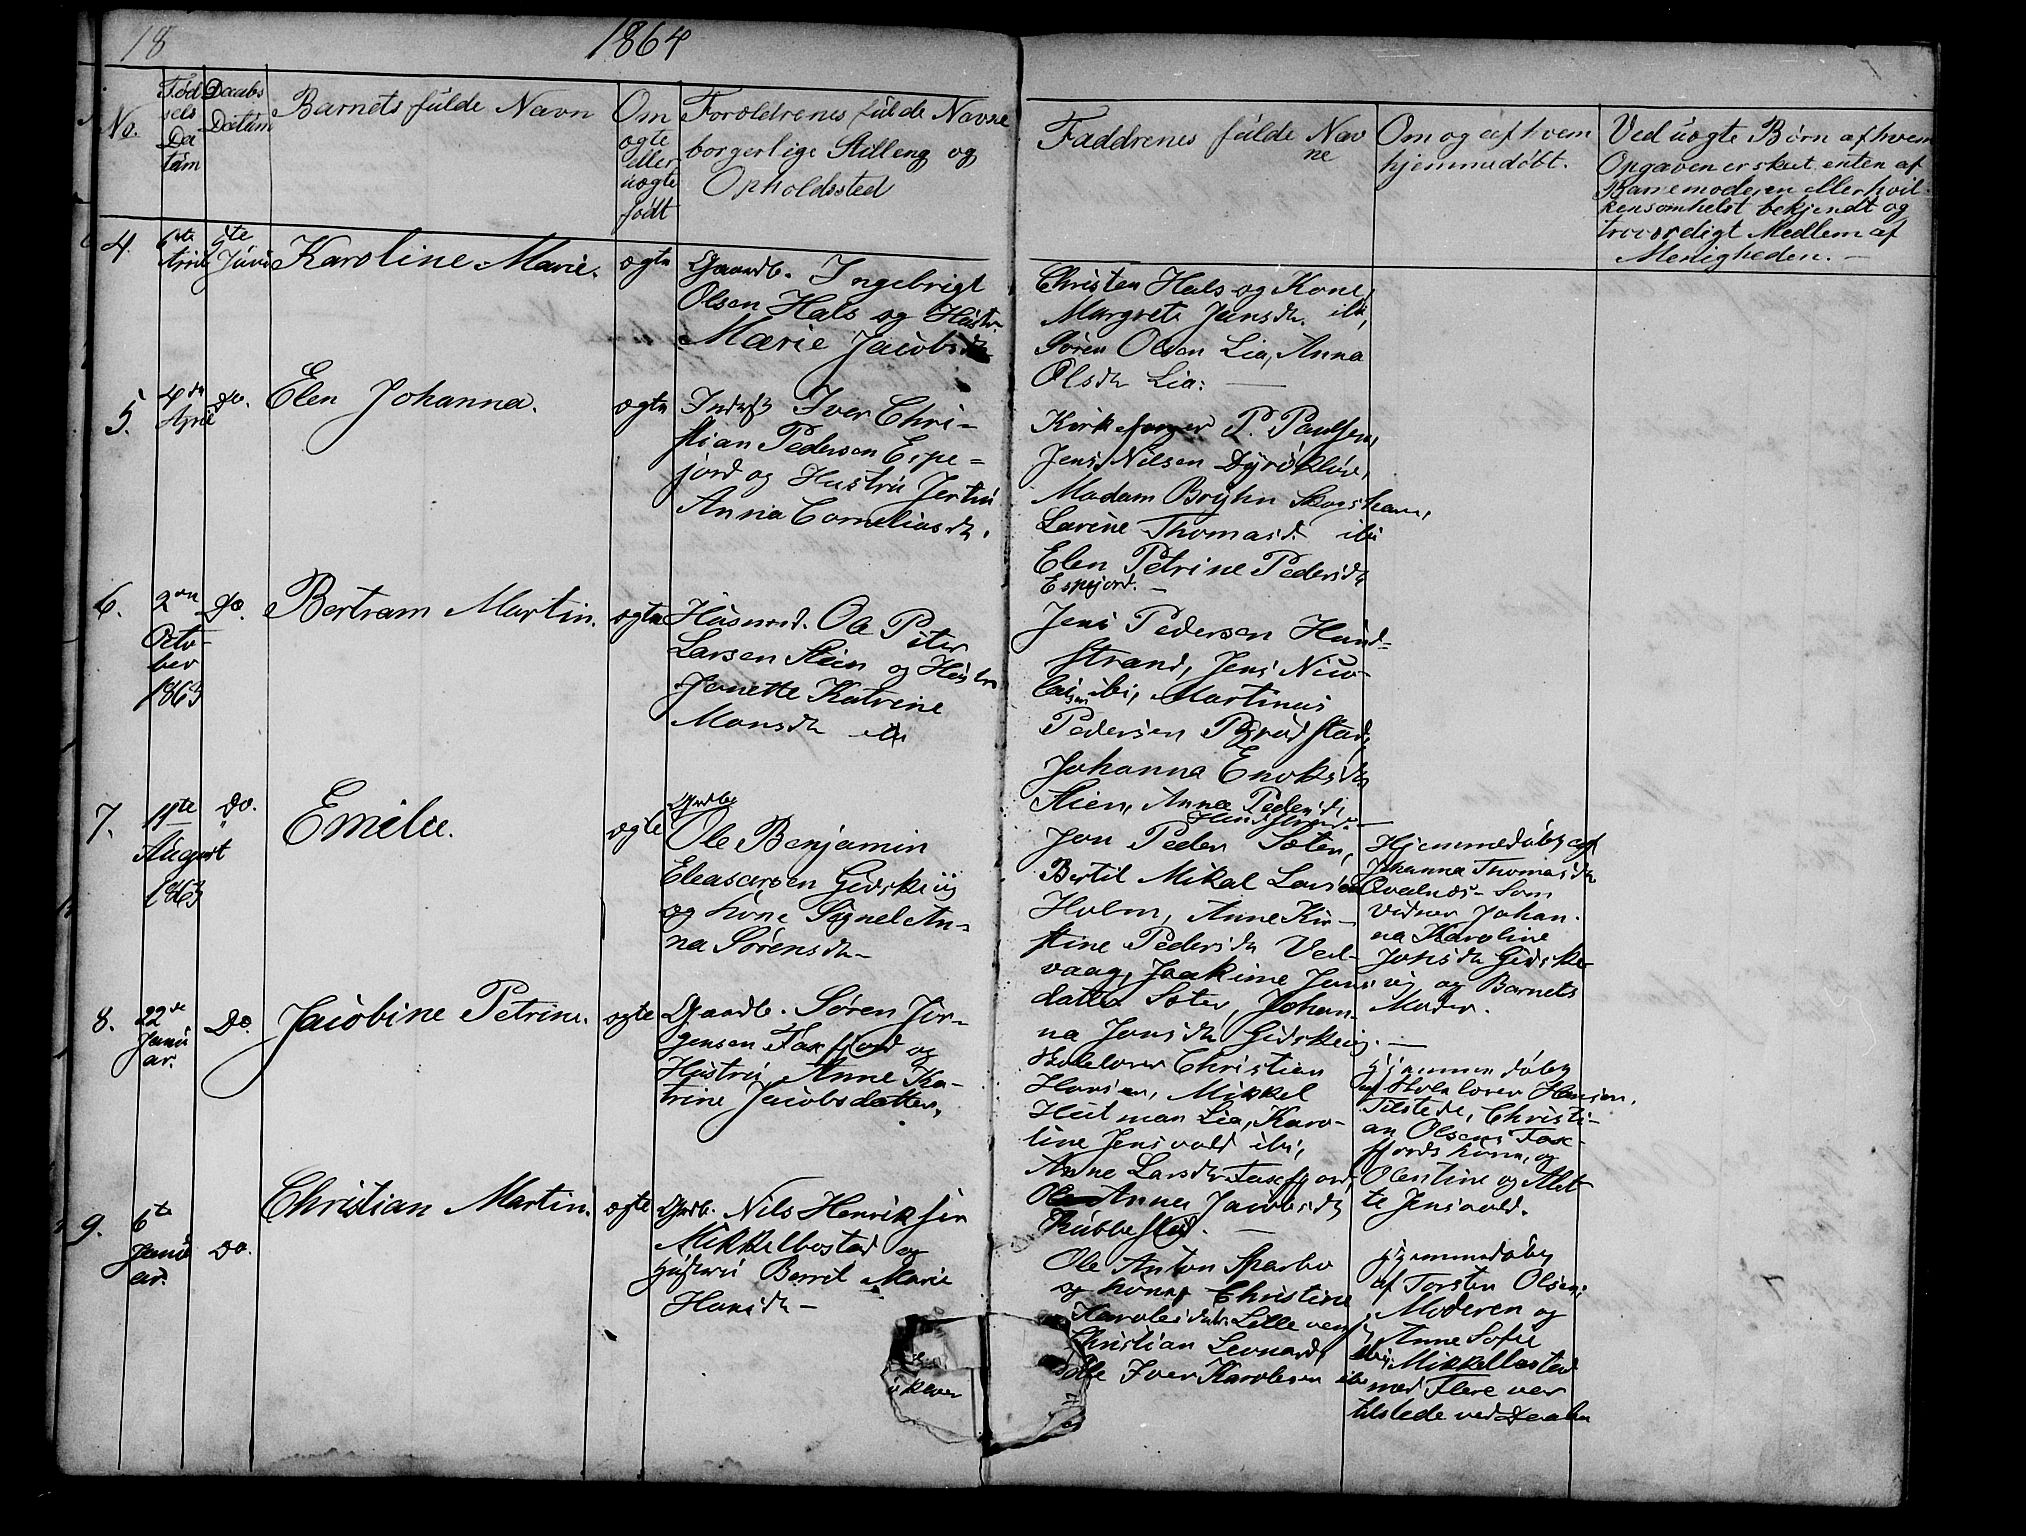 18
1864
No.
Fød
sels
Da
tum
Daabs
Datum
Barnets fulde Navn
Om
ægte
eller
uægte
født
Forældrenes fulde Navne
borgerlige Stilling og
Opholdssted
Faddrenes fulde Nav
ne
Om og af hvem
hjemmedøbt.
Ved uægte Børn af hvem
Opgaven er skeet enten af
Barnemoderen eller hvil-
kensomhelst bekjendt og
troværdigt Medlem af
Menigheden. –
4.
6te
April
5te
Juni
Karoline Marie.
ægte
Gaardb. Ingebrigt
Olsen Hals og Hustr.
Marie Jacobsd
Christen Hals og Kone
Margrete Jensdr. ibi,
Sören Olsen Lia, Anna
Olsdr Lia. –
5.
4de
April
do.
Elen Johanna.
ægte
Inderst Iver Chri-
stian Pedersen Espe=
jord og Hustru Jertru
Anna Corneliasdr.
Kirkesanger P. Paulsen,
Jens Nilsen Dyrökløv,
Madam Bryhn Skogshavn,
Larine Thomasd. ibi
Elen Petrine Pedersdr
Espejord. –
6.
2den
Octo-
ber
1863
Do.
Bertram Martin.
ægte
Husmd. Ole Peter
Larsen Stien og Hustr
Janette Katrine
Monsdr ibi
Jens Pedersen Hund-
strand, Jens Nico-
laisen ibi, Martinus
Pedersen Brudstad,
Johanna Enoksdr
Stien, Anna Pedersdr
Hundstrand. –
7.
19te
August
1863
Do.
Emilie.
ægte
Gardbr
Ole Benjamin
Eleasarsen Gidskevig
og Kone Signel An-
na Sörensdr –
Jon Peder Sæter,
Bertil Mikal Larsen
Holm, Anne Kir-
stine Pedersdr Ved-
vaag, Joakime Jons
datter Sæter, Johan-
na Jonsdr Gidskevig. –
Hjemmedøbt af
Johanna Thomasdr
Qvalnes – Som
Vidner Johan-
na Karoline
Jonsdr Gidske
vig og Barnets
Moder.
8.
22de
Janu
ar.
Do.
Jacobine Petrine.
ægte
Gaardb. Søren Jör-
gensen Faxfjord og
Hustru Anne Ka-
trine Jacobsdatter,
Skolelærer Christian
Hansen, Mikkel
Hultman Lia, Karo-
line Jensvold ibi,
Anne Larsdr Faxefjord,
Anne Jacobsdr
Kubbestad. –
Hjemmedøbt
af Skolelærer Hansen,
Tilstede, Christi-
an Olsens Fax-
fjords Kone, og
Olentine og Alet-
te Jensvold.
9.
6te
Janu
ar.
Do.
Christian Martin.
ægte
Gardb. Nils Henriksen
Mikkelbostad og
Hustru Berret Marie
Hansdr –
Ole Anton Sparbo
og Kone Christine
Karolesdatr Lilleven
Christian Leonard,
Ole Iver Karolesen ibi
Hjemmedøbt
af Torsten Olsen,
Moderen og
Anne Sofie
ibi, Mikkelbostad
med Flere var
tilstede ved Daaben